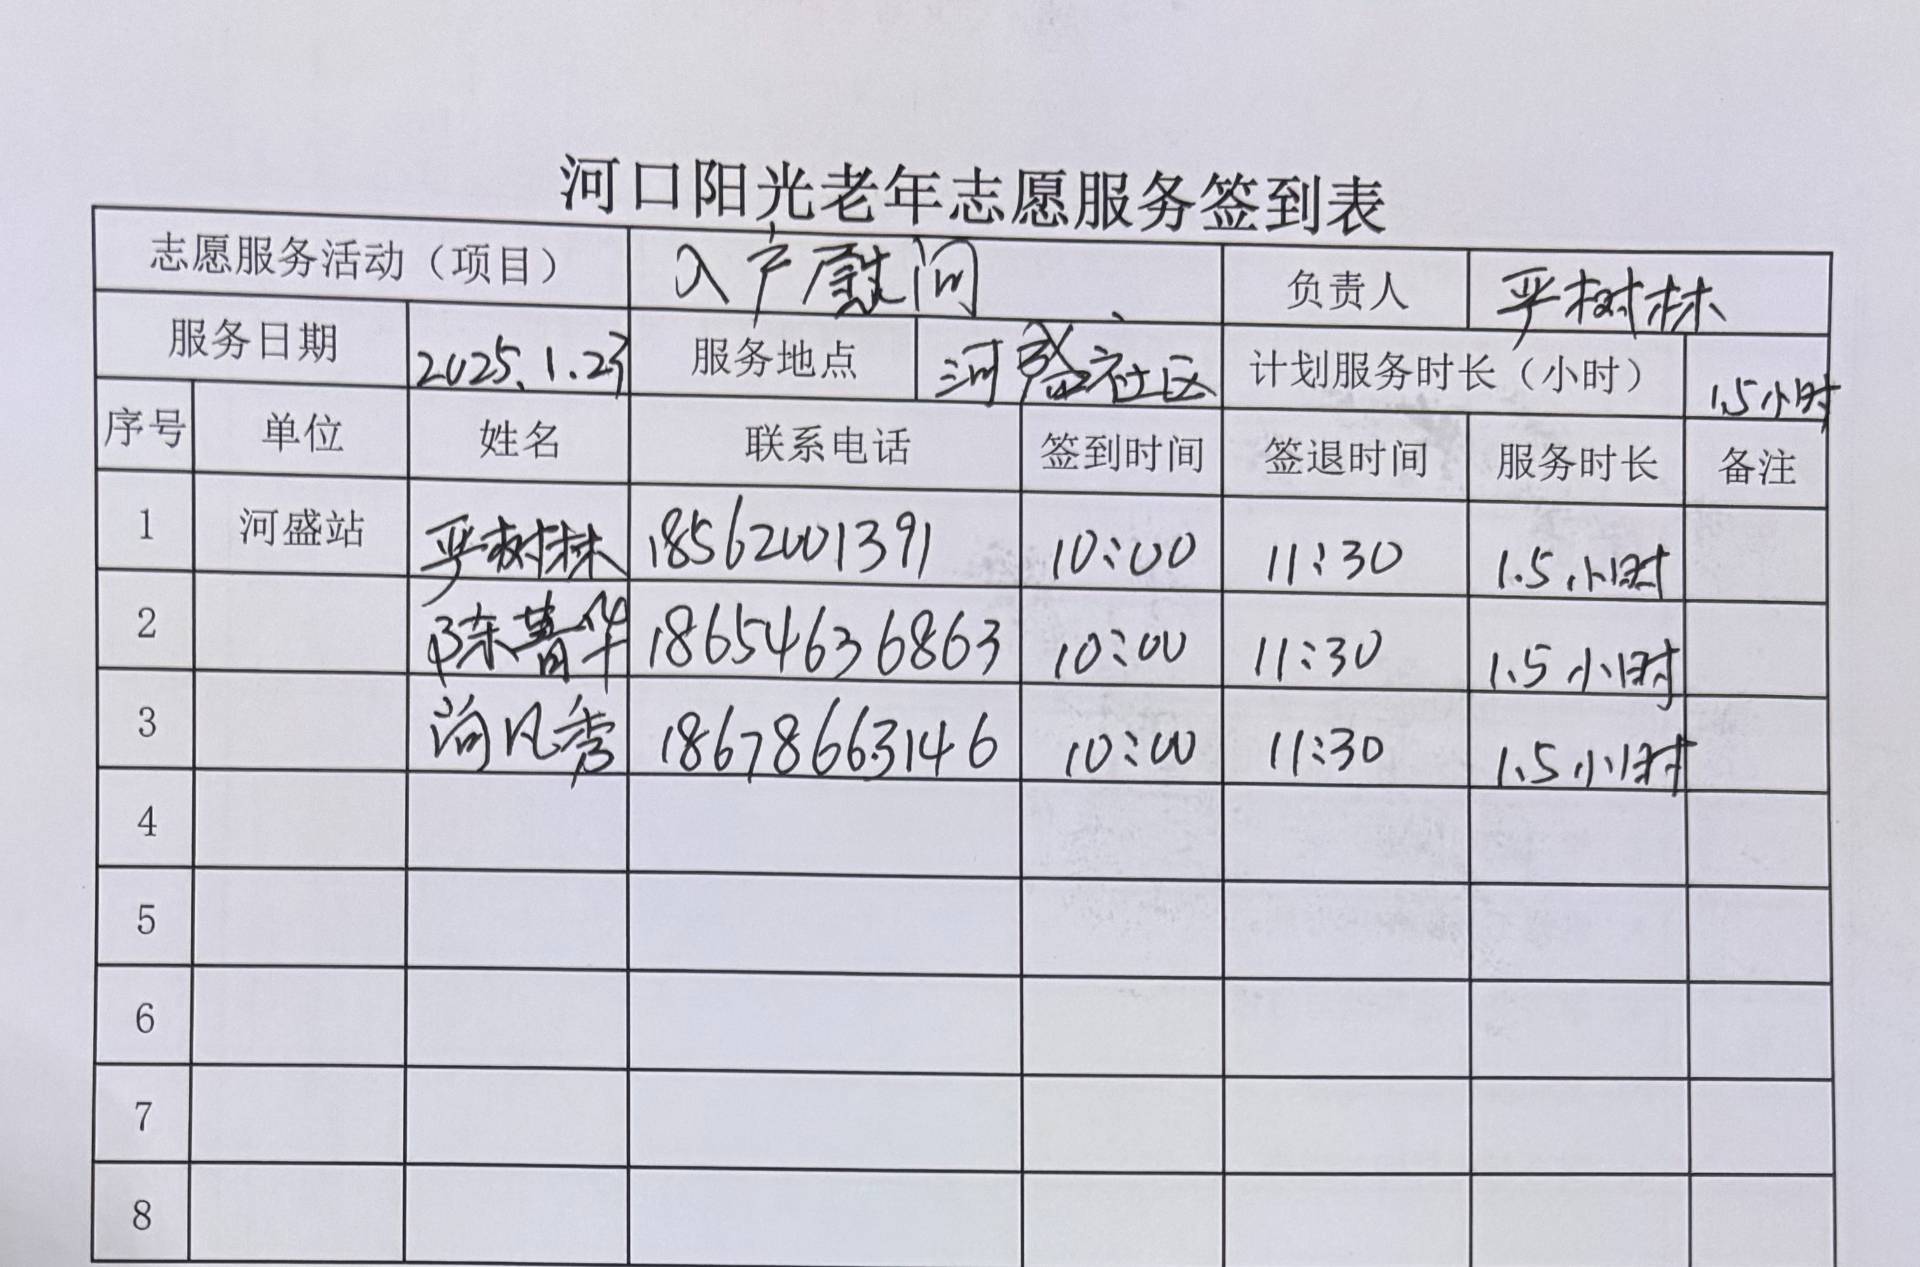 河口阳光老年志愿服务签到表
志愿服务活动（项目） 入户慰问 负责人 严树林
服务日期 2025.1.23 服务地点 河盛社区 计划服务时长（小时） 1.5小时
序号 单位 姓名 联系电话 签到时间 签退时间 服务时长 备注
1 河盛站 严树林 18562001391 10:00 11:30 1.5小时
2 陈菁华 18654636863 10:00 11:30 1.5小时
3 秀 18678663146 10:00 11:30 1.5小时
4
5
6
7
8